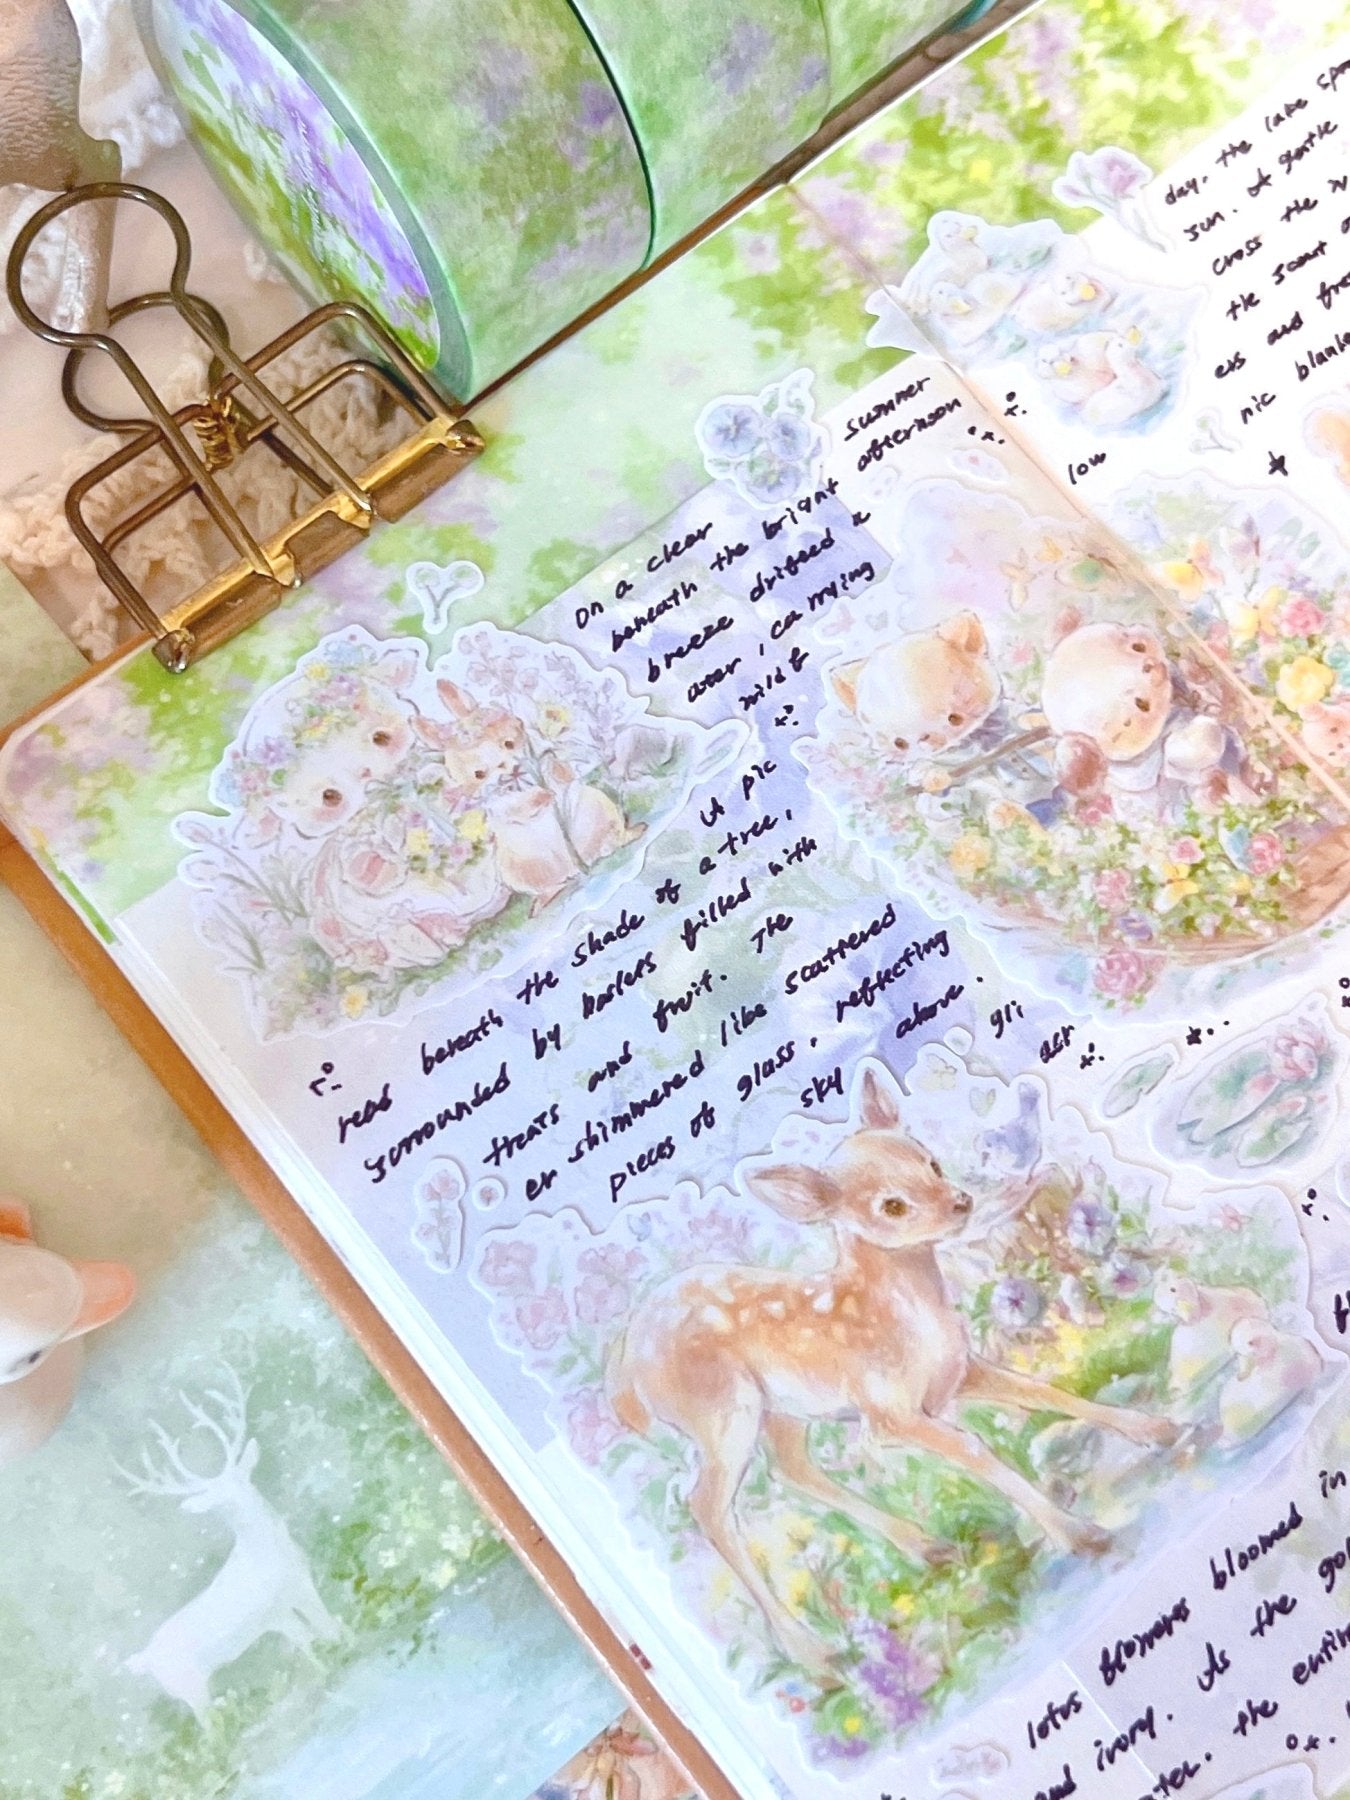 On a clear
summer
afternoon
day. the lake
beneath the bright
sun. A gentle
breeze drifeed a
cross the
ater, carrying
the scent
wild f
ers and
A pic
nic
low
read beneath the shade of a tree,
surrounded by baskets filled with
treats and fruit. The
er shimmered like scattered
pieces of glass. reflecting
sky above.
gli
lotus flowers bloomed in
and ivory. As the
the